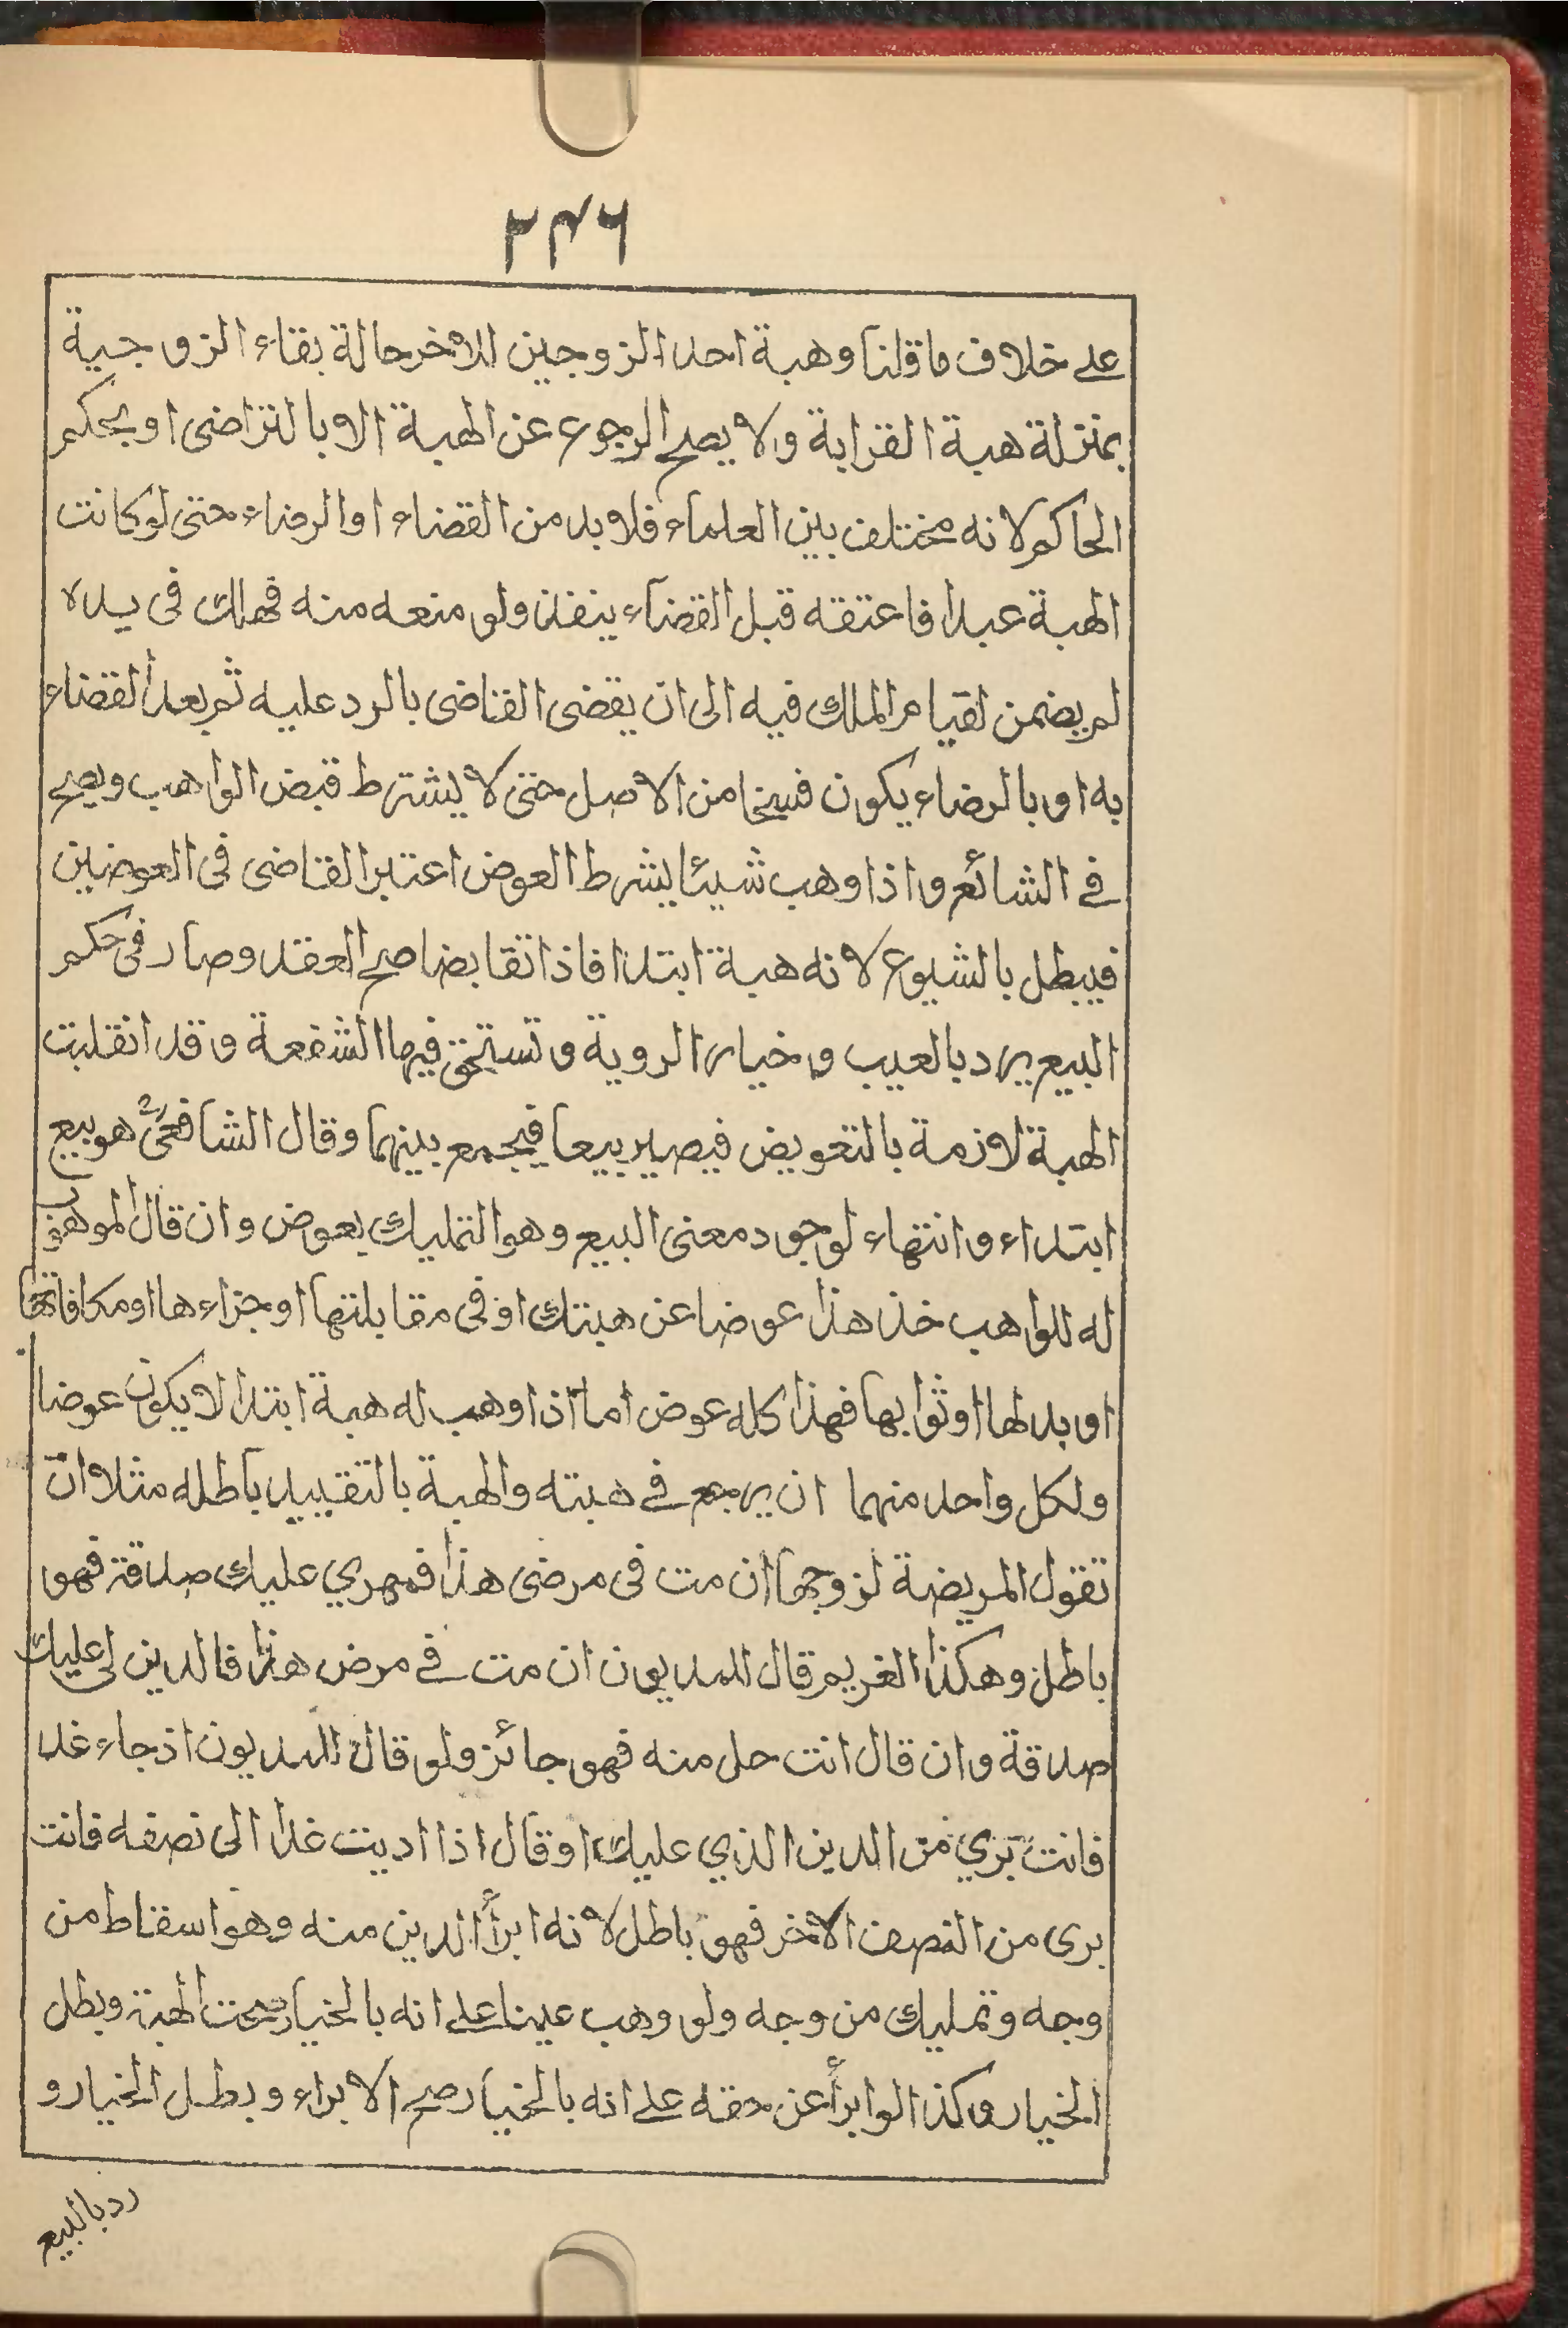 ۲۴۶
على خلاف ما قلنا وهبة احد الزوجين للاخر حالة بقاء الزوجية
بمنزلة هبة القرابة ولا يصح الرجوع عن الهبة الا بالتراضى او بحكم
الحاكم لانه مختلف بين العلماء فلا بد من القضاء او الرضاء حتى لو كانت
الهبة عبدا فاعتقه قبل القضاء ينفذ ولو منعه منه فهلك فى يده
لم يضمن لقيام الملك فيه الى ان يقضى القاضى بالرد عليه ثم بعد القضاء
به او بالرضاء يكون فسخا من الاصل حتى لا يشترط قبض الواهب ويصح
فے الشائع واذا وهب شيئا بشرط العوض اعتبر القاضى فى العوضين
فيبطل بالشيوع لانه هبة ابتدا فاذا تقابضا صح العقد وصار فى حكم
البيع يرد بالعيب وخيار الروية وتستحق فيها الشفعة وقد انقلبت
الهبة لازمة بالتعويض فيصير بيعا فيجمع بينهما وقال الشافعىؒ هو بيع
ابتداء وانتهاء لوجود معنى البيع وهو التمليك بعوض وان قال الموهوب
له للواهب خذ هذا عوضا عن هبتك او فى مقابلتها او جزاءها او مكافاتها
او بدلها او ثوابها فهذا كله عوض اما اذا وهب له هبة ابتدا لا يكون عوضا
ولكل واحد منهما ان يرجع فے هبته والهبة بالتقييد باطله مثلا ان
تقول المريضة لزوجها ان مت فى مرضى هذا فمهري عليك صدقة فهو
باطل وهكذا الغريم قال للمديون ان مت فے مرض هذا فالدين لى عليك
صدقة وان قال انت حل منه فهو جائز ولو قال للمديون اذ جاء غدا
فانت بري من الدين الذي عليك او قال اذا اديت غدا الى نصفه فانت
برى من النصف الاخر فهو باطل لانه ابرأ الدين منه وهو اسقاط من
وجه وتمليك من وجه ولو وهب عينا على انه بالخيار صحت الهبة وبطل
الخيار وكذا لو ابرأ عن حقه على انه بالخيار صح الابراء وبطل الخيار و
رد بالبيع